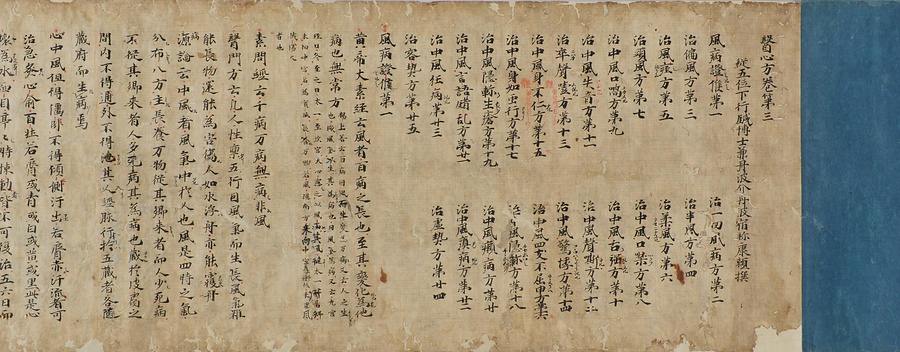 醫心方卷第三
從五位下行鍼博士兼丹波介丹波宿祢康頼撰
風病證候第一 治一切風病方第二
治偏風方第三 治半風方第四
治風痙方第五 治柔風方第六
治頭風方第七 治中風口噤方第八
治中風口喎方第九 治中風舌強方第十
治中風失音方第十一 治中風聲嘶方第十二
治卒聲噎方第十三 治中風驚悸方第十四
治中風身不仁方第十五 治中風四支不屈申方第十六
治中風身如虫行方第十七 治中風隱軫方第十八
治中風隱軫生瘡方第十九 治中風癩病方第廿
治中風言語錯乱方第廿一 治中風癲病方第廿二
治中風狂病第廿三 治虚熱方第廿四
治客熱方第廿五
風病證候第一
黄帝大素經云風者百病之長也至其變化爲他
病也無常方
素問經云千病万病無病非風
醫門方云凡人性禀五行因風氣而生長風氣雖
能長物還能爲害傷人如水浮舟亦能覆舟
病源論云中風者風氣中於人也風是四時之氣
分布八方主長養万物從其郷來者人少死病
不從其郷來者人多死病其爲病也藏於皮膚之
間内不得通外不得洩其入經脉行於五藏者各隨
藏府而生病焉
心中風但得偃臥不得傾側汗出若脣赤汗流者可
治急灸心俞百壯若脣或青或白或黄或黒此是心
壞爲水面目亭々時悚動皆不可復治五六日而